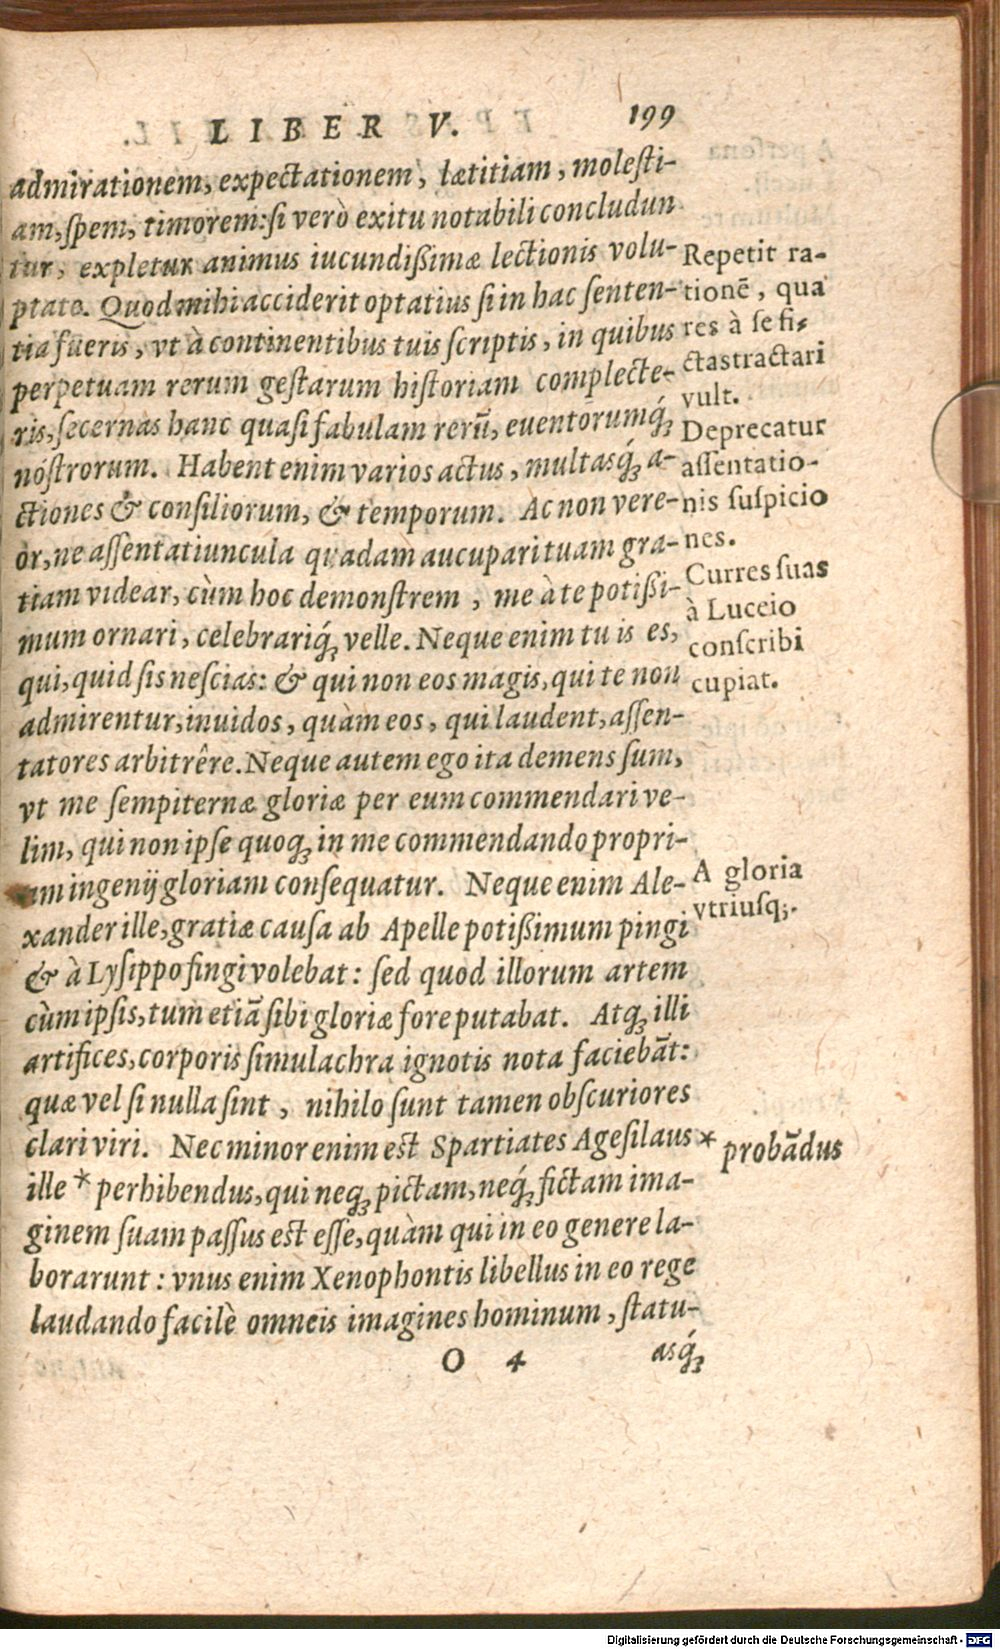 LIBER V. 199
admirationem, expectationem, lætitiam, molesti-
am, spem, timorem: si verò exitu notabili concludun
tur, expletur animus iucundißimæ lectionis volu-
ptate. Quod mihi acciderit optatius si in hac senten-
tia fueris, vt à continentibus tuis scriptis, in quibus
perpetuam rerum gestarum historiam complecte-
ris, secernas hanc quasi fabulam rerũ, euentorumq́;
nostrorum. Habent enim varios actus, multasq́; a-
ctiones & consiliorum, & temporum. Ac non vere-
or, ne assentatiuncula quadam aucupari tuam gra-
tiam videar, cùm hoc demonstrem, me à te potißi-
mum ornari, celebrariq́; velle. Neque enim tu is es,
qui, quid sis nescias: & qui non eos magis, qui te non
admirentur, inuidos, quàm eos, qui laudent, assen-
tatores arbitrêre. Neque autem ego ita demens sum,
vt me sempiternæ gloriæ per eum commendari ve-
lim, qui non ipse quoq; in me commendando propri-
am ingenij gloriam consequatur. Neque enim Ale-
xander ille, gratiæ causa ab Apelle potißimum pingi
& à Lysippo fingi volebat: sed quod illorum artem
cùm ipsis, tum etiã sibi gloriæ fore putabat. Atq; illi
artifices, corporis simulachra ignotis nota faciebãt:
quæ vel si nulla sint, nihilo sunt tamen obscuriores
clari viri. Nec minor enim est Spartiates Agesilaus
ille * perhibendus, qui neq; pictam, neq́; fictam ima-
ginem suam passus est esse, quàm qui in eo genere la-
borarunt: vnus enim Xenophontis libellus in eo rege
laudando facilè omneis imagines hominum, statu-
O 4 asq́;
Repetit ra-
tionẽ, qua
res à se fi-
ctas tractari
vult.
Deprecatur
assentatio-
nis suspicio
nes.
Cur res suas
à Lucceio
conscribi
cupiat.
A gloria
vtriusq;.
* probãdus
Digitalisierung gefördert durch die Deutsche Forschungsgemeinschaft - DFG